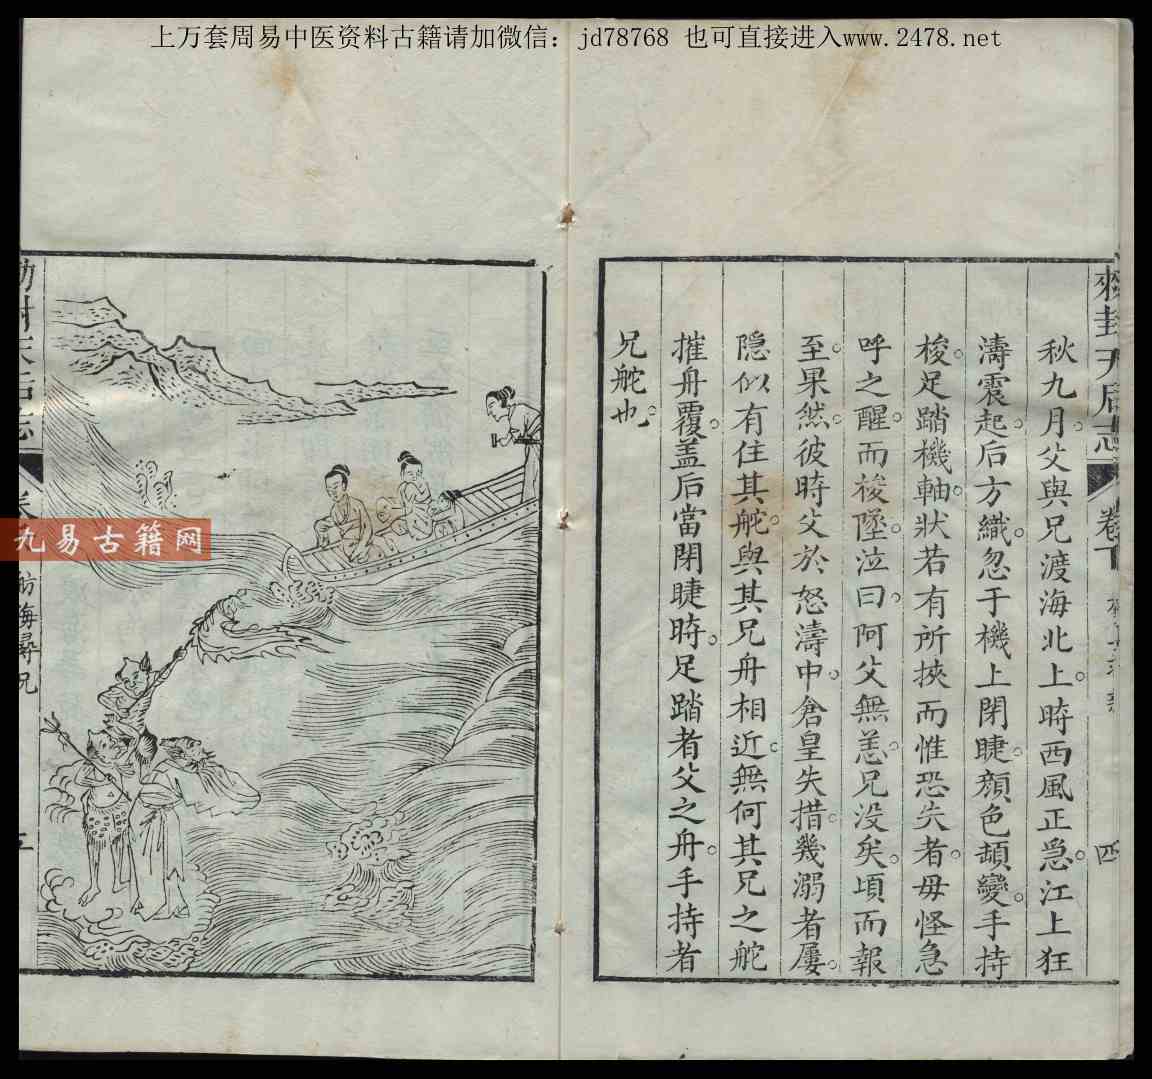 上万套周易中医资料古籍请加微信：jd78768 也可直接进入www.2478.net
勅封天后志
卷下
四
秋九月。父與兄渡海北上。時西風正急。江上狂
濤震起。后方織。忽于機上閉睫。顏色頓變。手持
梭。足踏機軸。狀若有所挾而惟恐失者。母怪急
呼之醒。而梭墜。泣曰。阿父無恙。兄没矣。頃而報
至。果然。彼時父於怒濤中。倉皇失措。幾溺者屢。
隱似有住其舵。與其兄舟相近。無何其兄之舵
摧舟覆。盖后當閉睫時。足踏者父之舟。手持者
兄舵也。
勅封天后志
九易古籍网
航海尋兄
五